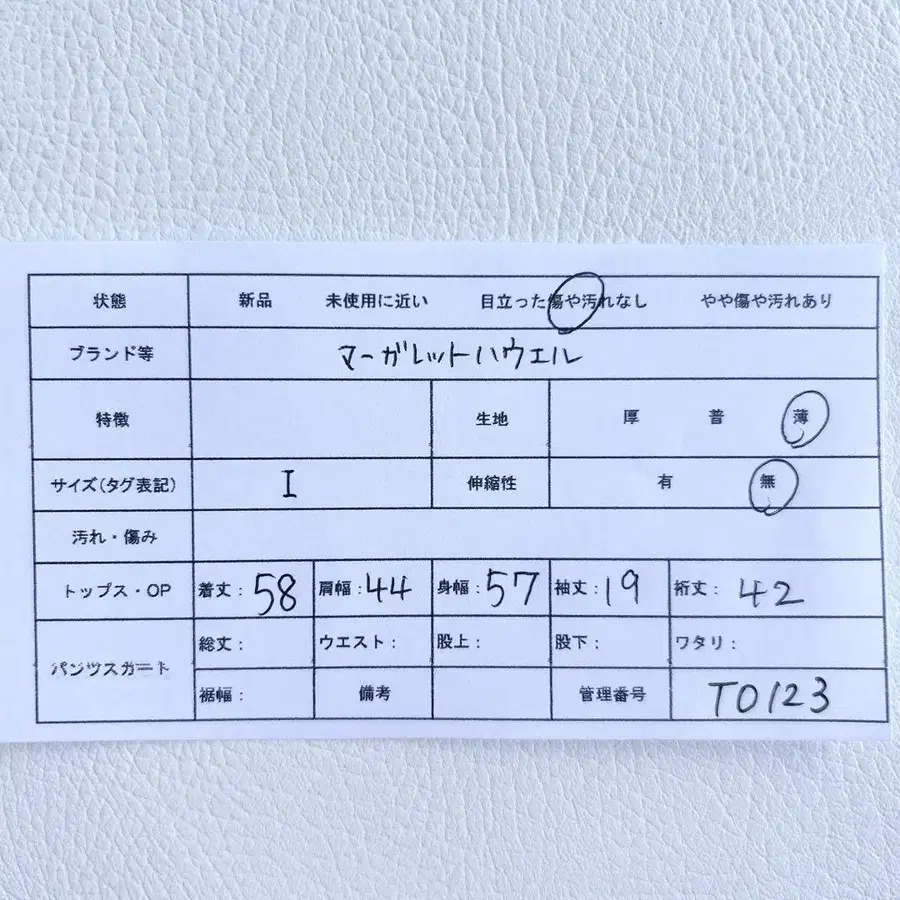 状態 新品 未使用に近い 目立った傷や汚れなし やや傷や汚れあり
ブランド等 マーガレットハウエル
特徴 生地 厚 普 薄
サイズ(タグ表記) I 伸縮性 有 無
汚れ・傷み
トップス・OP 着丈:58 肩幅:44 身幅:57 袖丈:19 裄丈:42
パンツスカート 総丈: ウエスト: 股上: 股下: ワタリ:
裾幅: 備考 管理番号 T0123